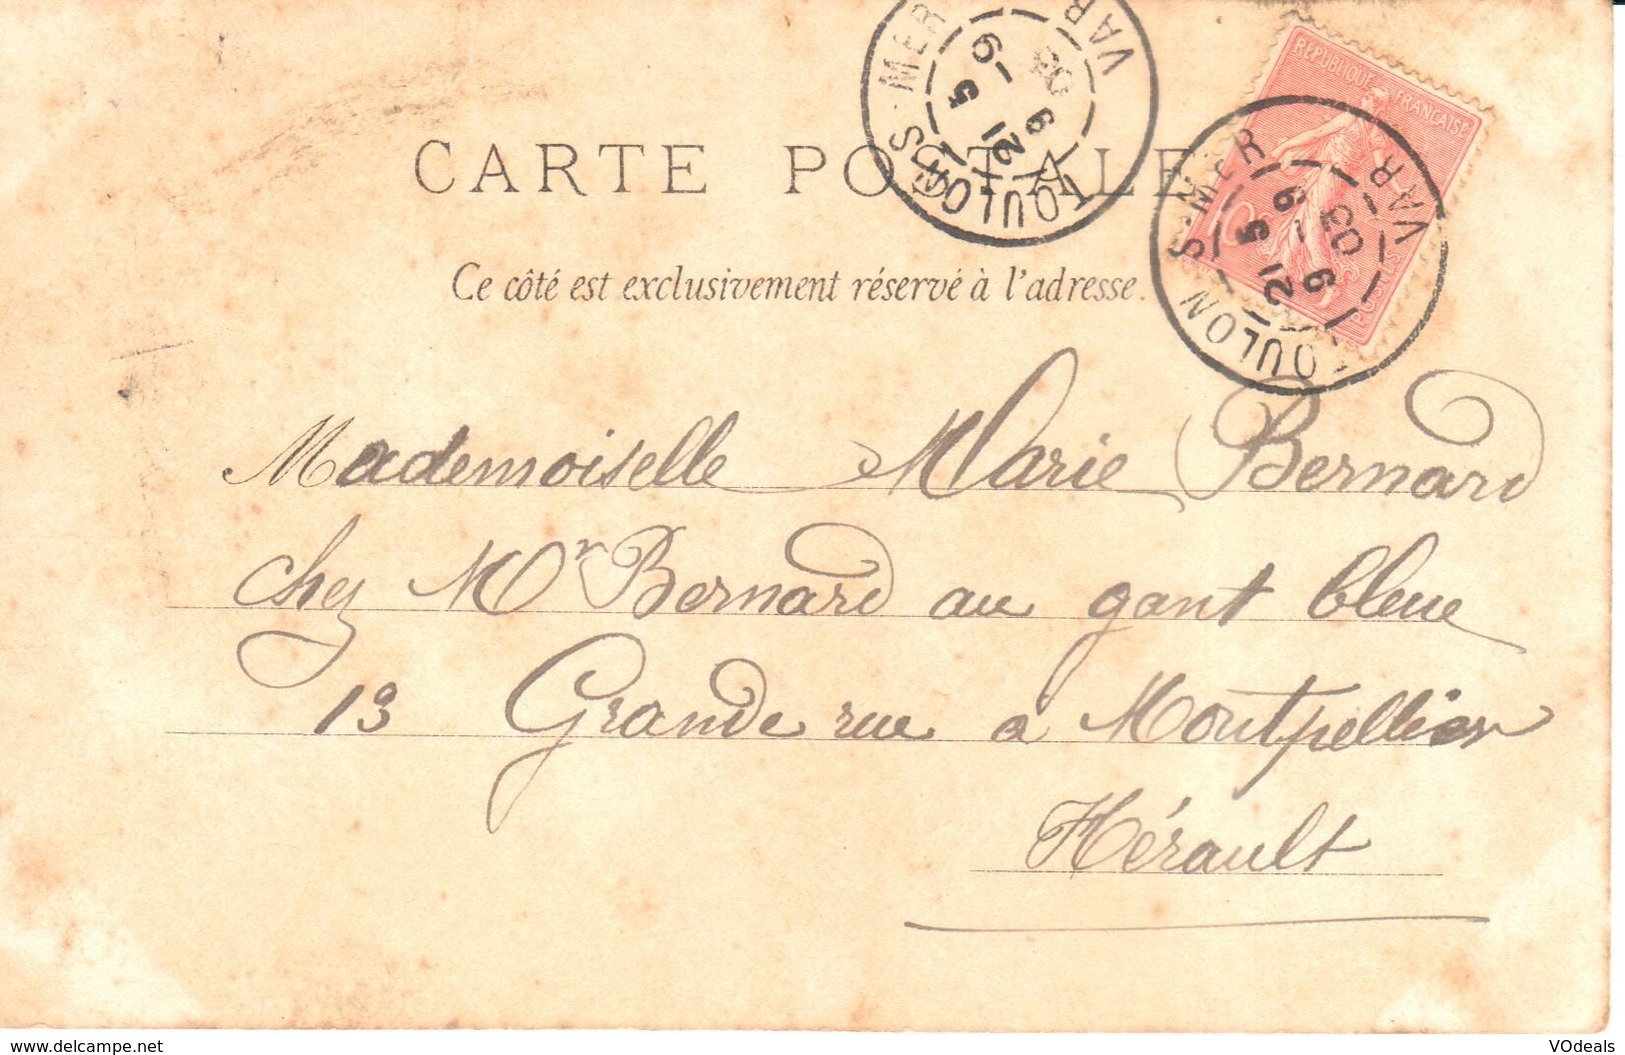 CARTE POSTALE
Ce côté est exclusivement réservé à l'adresse.
REPUBLIQUE FRANCAISE
10c POSTES
TOULON S-MER
VAR
21 5
9 03
TOULON S-MER
VAR
21 5
9 03
Mademoiselle Marie Bernard
chez Mr Bernard au gant bleue
13 Grande rue a Montpellier
Hérault
www.delcampe.net
VOdeals